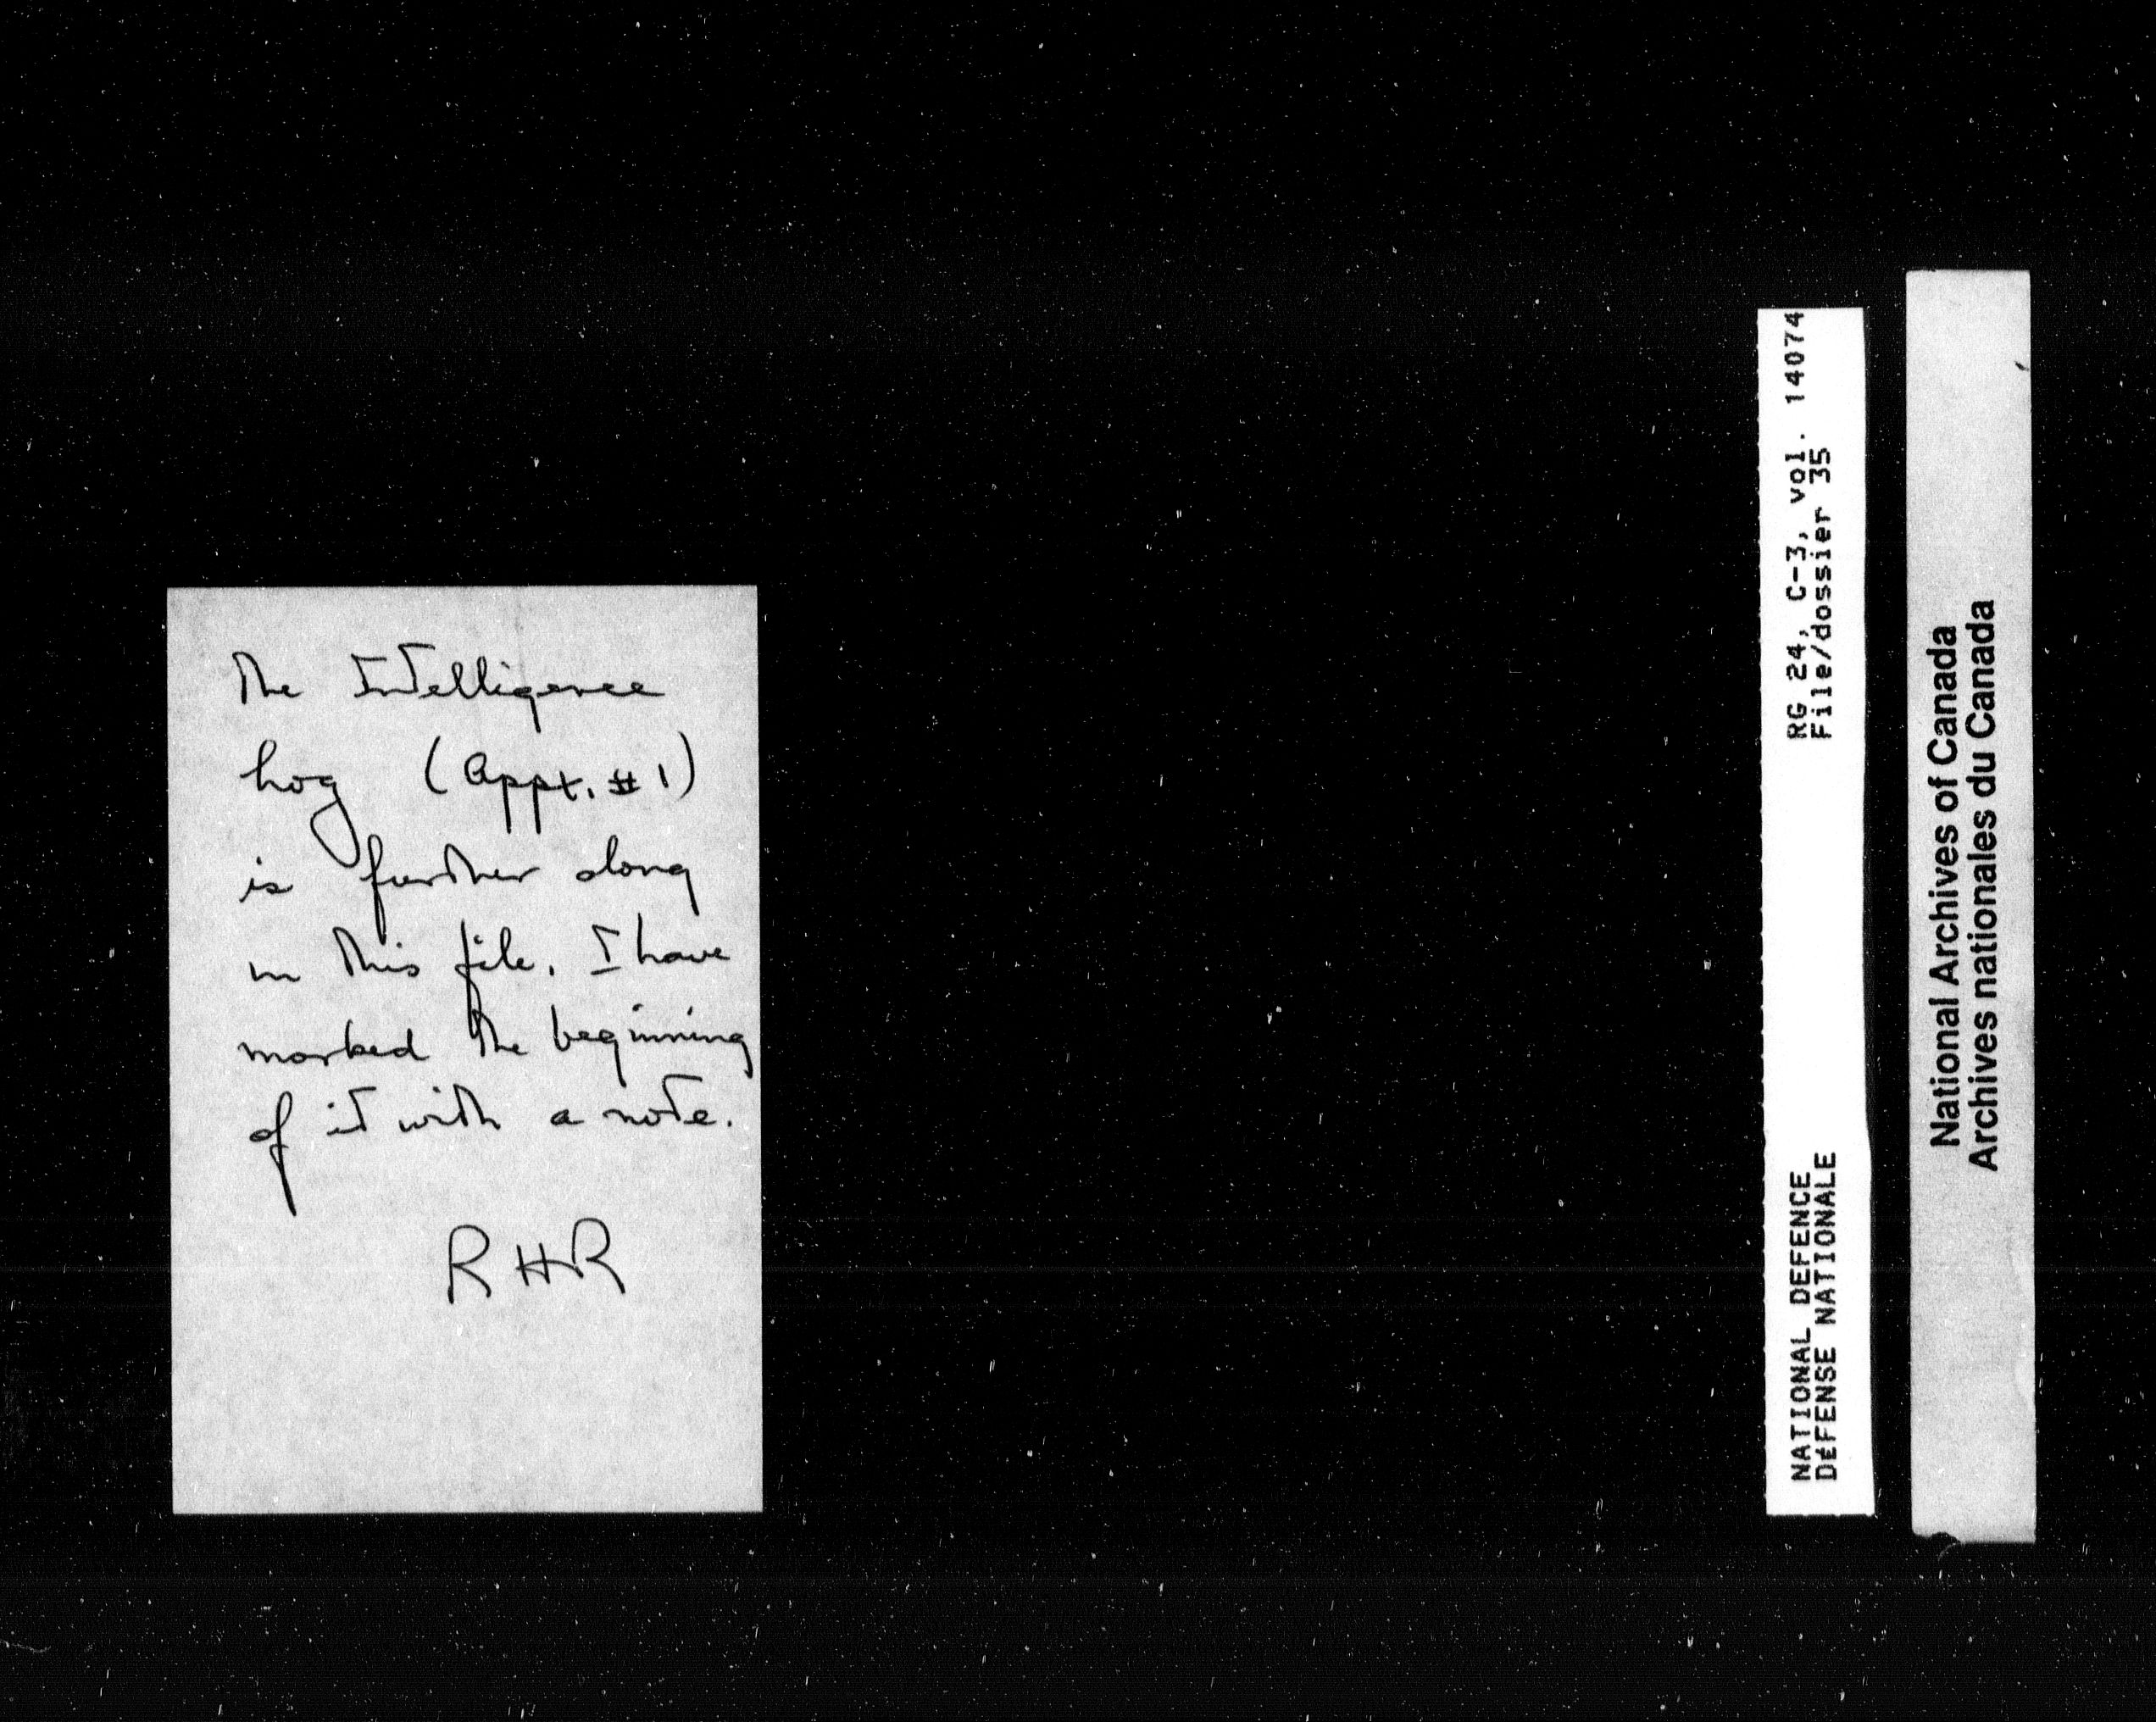 The Intelligence
Log (Appx. #1)
is further along
in this file. I have
marked the beginning
of it with a note.
RHR
NATIONAL DEFENCE RG 24, C-3, vol. 14074
DÉFENSE NATIONALE File/dossier 35
National Archives of Canada
Archives nationales du Canada